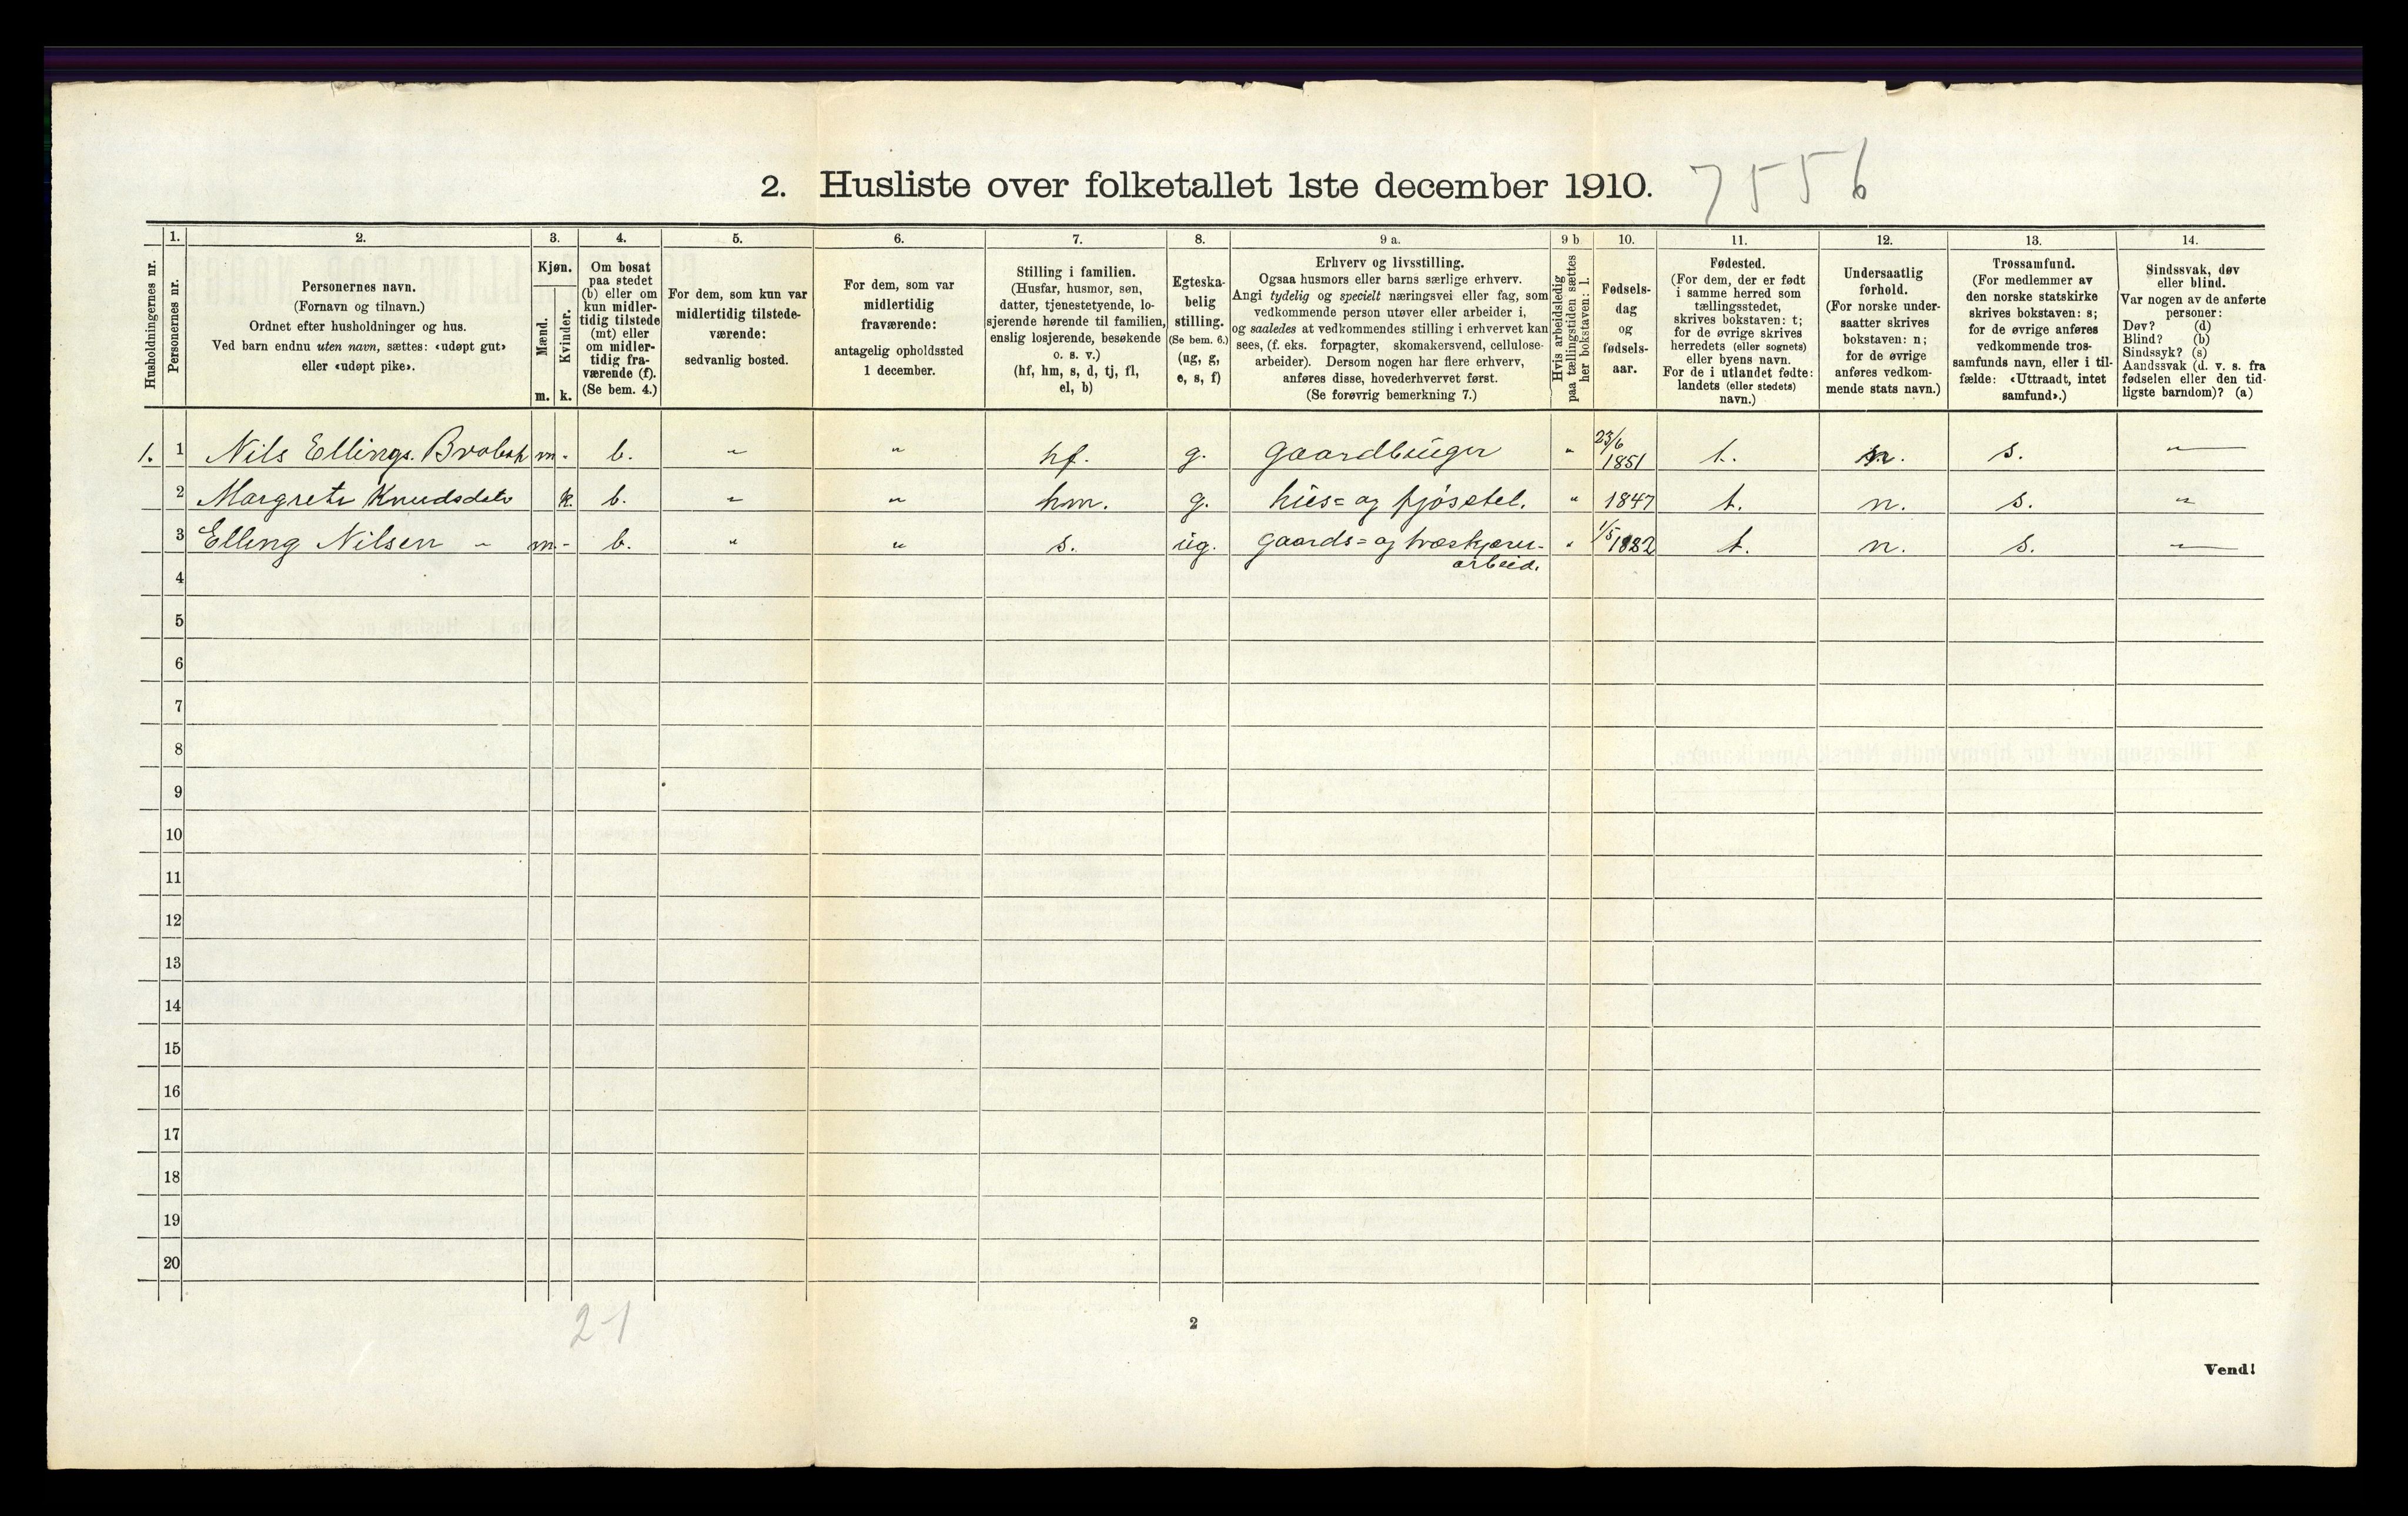 2. Husliste over folketallet 1ste december 1910.
7556
Husholdningernes nr.
1.
Personernes nr.
2.
Personernes navn.
(Fornavn og tilnavn.)
Ordnet efter husholdninger og hus.
Ved barn endnu uten navn, sættes: «udøpt gut»
eller «udøpt pike».
3.
Kjøn.
Mænd.
m.
Kvinder.
k.
4.
Om bosat
paa stedet
(b) eller om
kun midler-
tidig tilstede
(mt) eller
om midler-
tidig fra-
værende (f).
(Se bem. 4.)
5.
For dem, som kun var
midlertidig tilstede-
værende:
sedvanlig bosted.
6.
For dem, som var
midlertidig
fraværende:
antagelig opholdssted
1 december.
7.
Stilling i familien.
(Husfar, husmor, søn,
datter, tjenestetyende, lo-
sjerende hørende til familien,
enslig losjerende, besøkende
o. s. v.)
(hf, hm, s, d, tj, fl,
el, b)
8.
Egteska-
belig
stilling.
(Se bem. 6.)
(ug, g,
e, s, f)
9 a.
Erhverv og livsstilling.
Ogsaa husmors eller barns særlige erhverv.
Angi tydelig og specielt næringsvei eller fag, som
vedkommende person utøver eller arbeider i,
og saaledes at vedkommendes stilling i erhvervet kan
sees, (f. eks. forpagter, skomakersvend, cellulose-
arbeider). Dersom nogen har flere erhverv,
anføres disse, hovederhvervet først.
(Se forøvrig bemerkning 7.)
9 b
Hvis arbeidsledig
paa tællingstiden sættes
her bokstaven: l.
10.
Fødsels-
dag
og
fødsels-
aar.
11.
Fødested.
(For dem, der er født
i samme herred som
tællingsstedet,
skrives bokstaven: t;
for de øvrige skrives
herredets (eller sognets)
eller byens navn.
For de i utlandet fødte:
landets (eller stedets)
navn.)
12.
Undersaatlig
forhold.
(For norske under-
saatter skrives
bokstaven: n;
for de øvrige
anføres vedkom-
mende stats navn.)
13.
Trossamfund.
(For medlemmer av
den norske statskirke
skrives bokstaven: s;
for de øvrige anføres
vedkommende tros-
samfunds navn, eller i til-
fælde: «Uttraadt, intet
samfund».)
14.
Sindssvak, døv
eller blind.
Var nogen av de anførte
personer:
Døv? (d)
Blind? (b)
Sindssyk? (s)
Aandssvak (d. v. s. fra
fødselen eller den tid-
ligste barndom)? (a)
1. 1 Nils Ellings. m - b. " " hf. g. gaardbruger " 23/6 1851 t. n. s. "
2 Margrete Knudsdatr k. b. " " hm. g. hus= og fjøsstel. " 1847 t. n. s. "
3 Elling Nilsen " m. - b. " " s. ug. gaards= og træskjærer- " 1/5 1882 t. n. s. "
arbeid.
4
5
6
7
8
9
10
11
12
13
14
15
16
17
18
19
20
2-1
2
Vend!